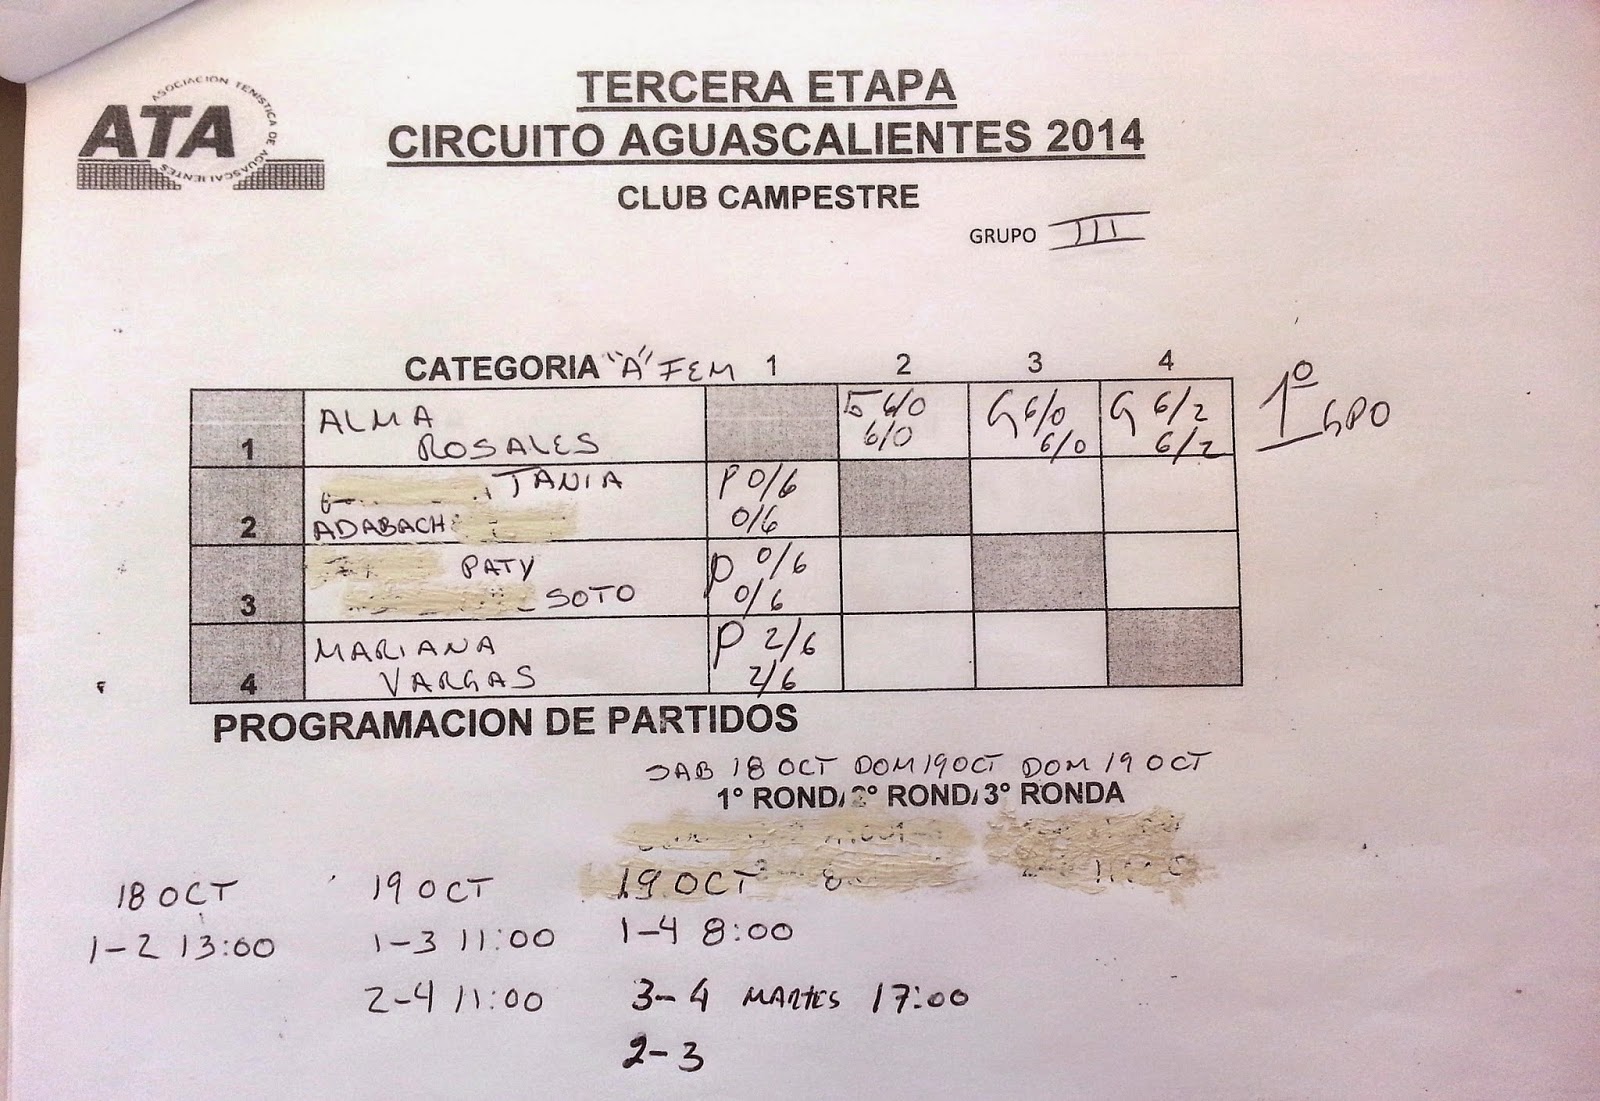 TERCERA ETAPA
CIRCUITO AGUASCALIENTES 2014
CLUB CAMPESTRE
ATA
ASOCIACION TENISTICA DE AGUASCALIENTES
GRUPO III
CATEGORIA "A" FEM 1 2 3 4
1 ALMA ROSALES G 6/0 6/0 G 6/0 6/0 G 6/2 6/2 1º GPO
2 TANIA ADABACH P 0/6 0/6
3 PATY SOTO P 0/6 0/6
4 MARIANA VARGAS P 2/6 2/6
PROGRAMACION DE PARTIDOS
SAB 18 OCT DOM 19 OCT DOM 19 OCT
1° RONDA 2° RONDA 3° RONDA
18 OCT 19 OCT 19 OCT
1-2 13:00 1-3 11:00 1-4 8:00
2-4 11:00 3-4 MARTES 17:00
2-3